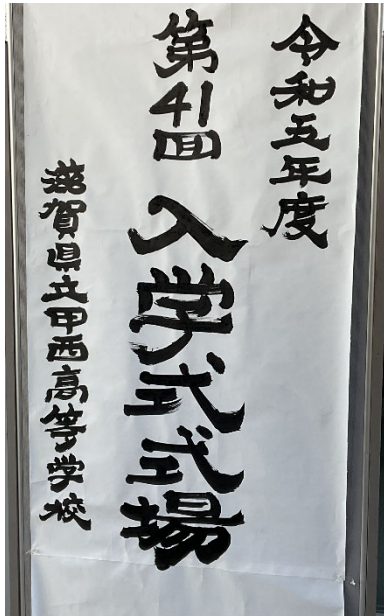 令和五年度
第41回 入学式式場
滋賀県立甲西高等学校